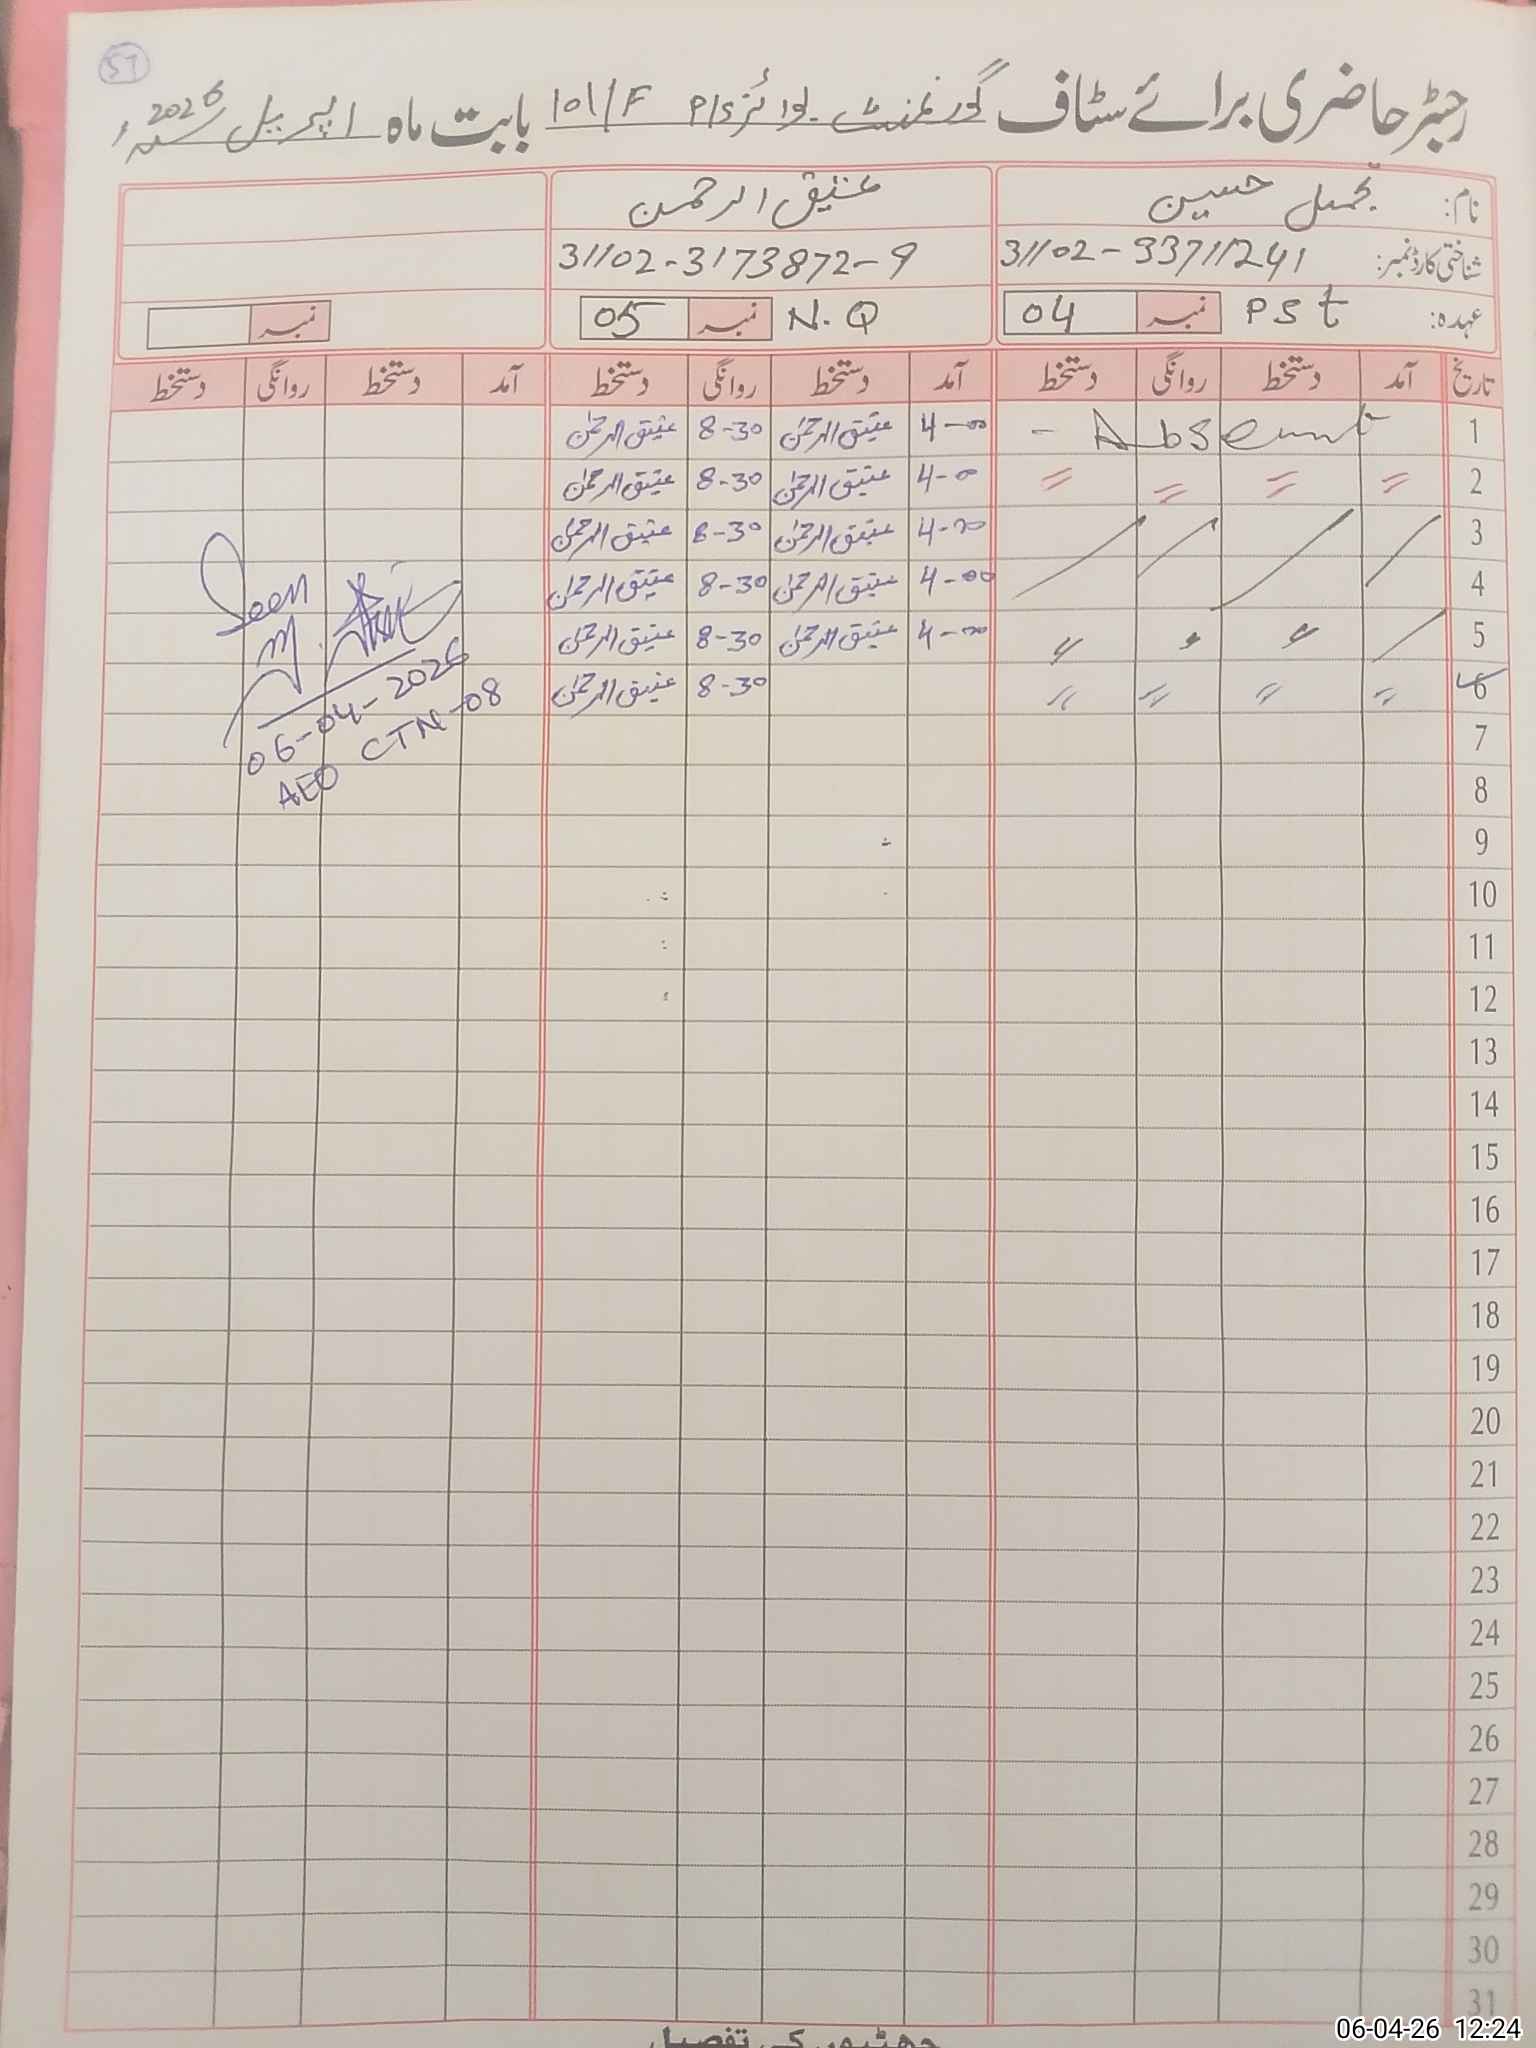 57
رجسٹر حاضری برائے سٹاف گورنمنٹ بوائز P/S 101/F بابت ماہ اپریل سنہ 2026ء
نام: تجمل حسین عتیق الرحمن
شناختی کارڈ نمبر: 31102-33711241 31102-3173872-9
عہدہ: PSt نمبر 04 N.Q نمبر 05 نمبر
تاریخ آمد دستخط روانگی دستخط آمد دستخط روانگی دستخط آمد دستخط روانگی دستخط
1 Absent - 4-00 عتیق الرحمٰن 8-30 عتیق الرحمٰن
2 〃 〃 〃 〃 4-00 عتیق الرحمٰن 8-30 عتیق الرحمٰن
3 4-00 عتیق الرحمٰن 8-30 عتیق الرحمٰن
4 4-00 عتیق الرحمٰن 8-30 عتیق الرحمٰن
5 〃 〃 〃 4-00 عتیق الرحمٰن 8-30 عتیق الرحمٰن
6 〃 〃 〃 〃 8-30 عتیق الرحمٰن
Seen
06-04-2026
AEO CTN-08
7
8
9
10
11
12
13
14
15
16
17
18
19
20
21
22
23
24
25
26
27
28
29
30
31
چھٹیوں کی تفصیل
06-04-26 12:24